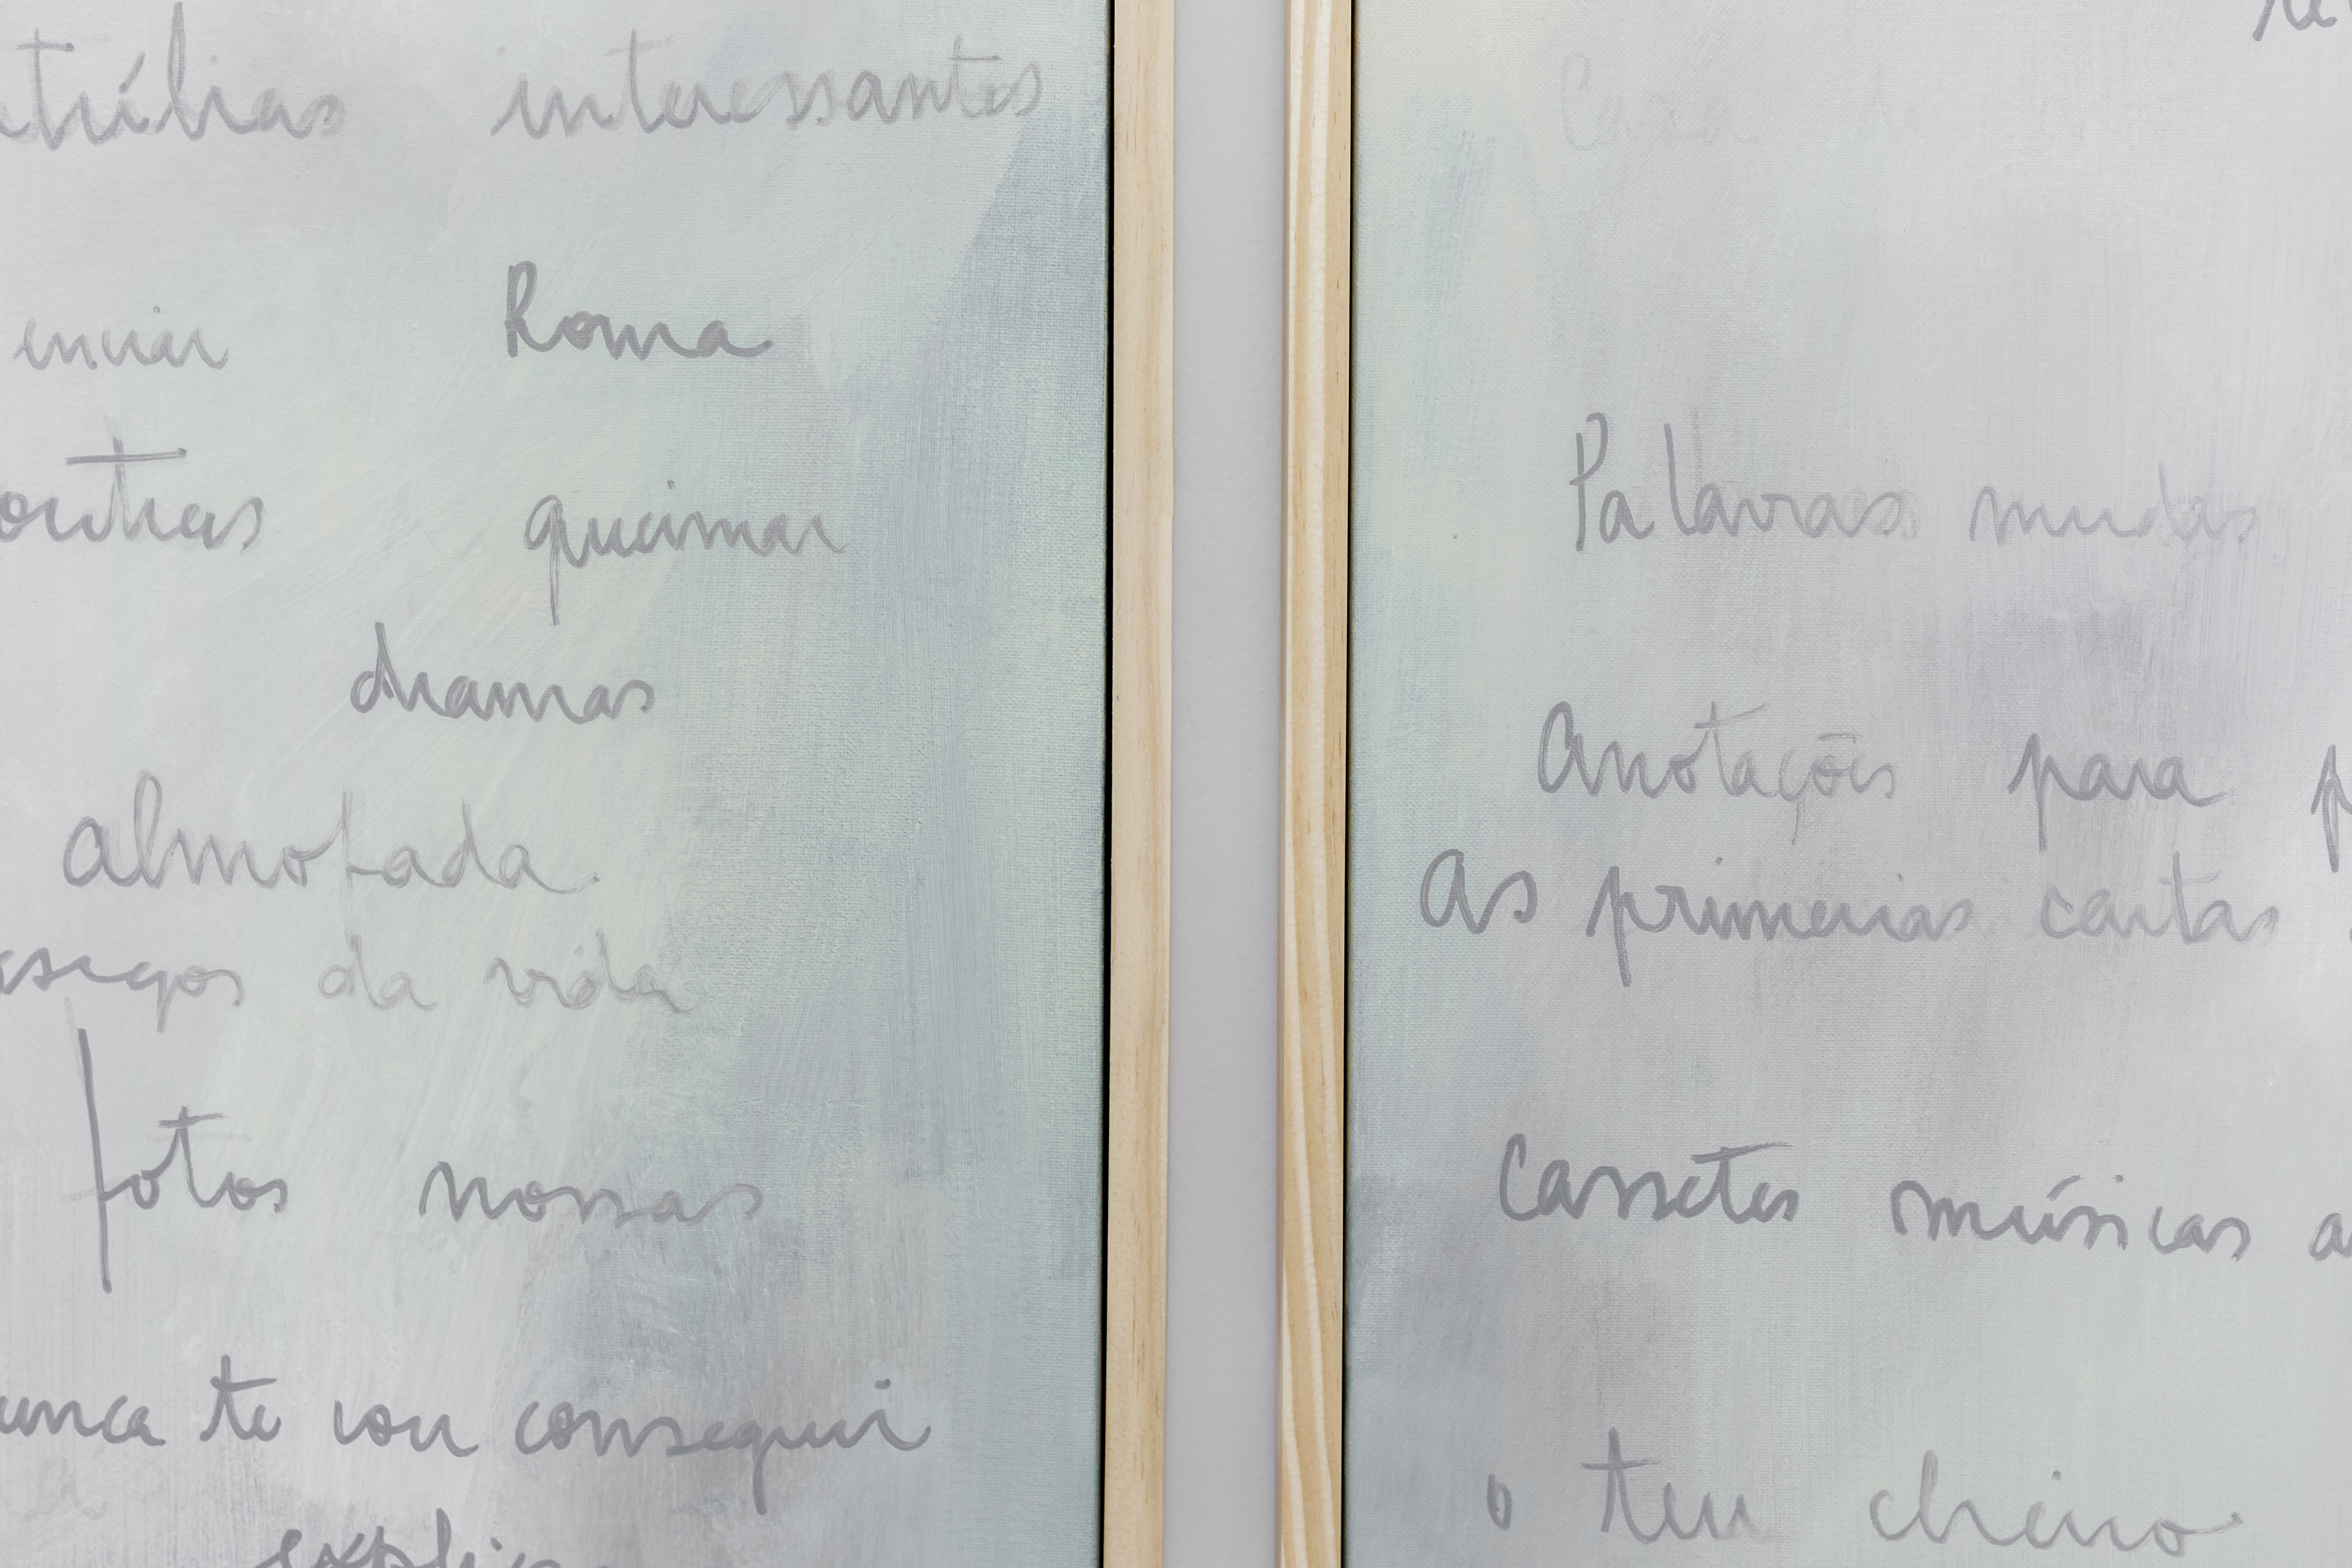 interessantes
enviar Roma
outras queimar
dramas
almofada
da vida
fotos nossas
te vou conseguir
Casa
Palavras mudas
Anotações para
As primeiras cartas
Cassetes músicas
o teu cheiro